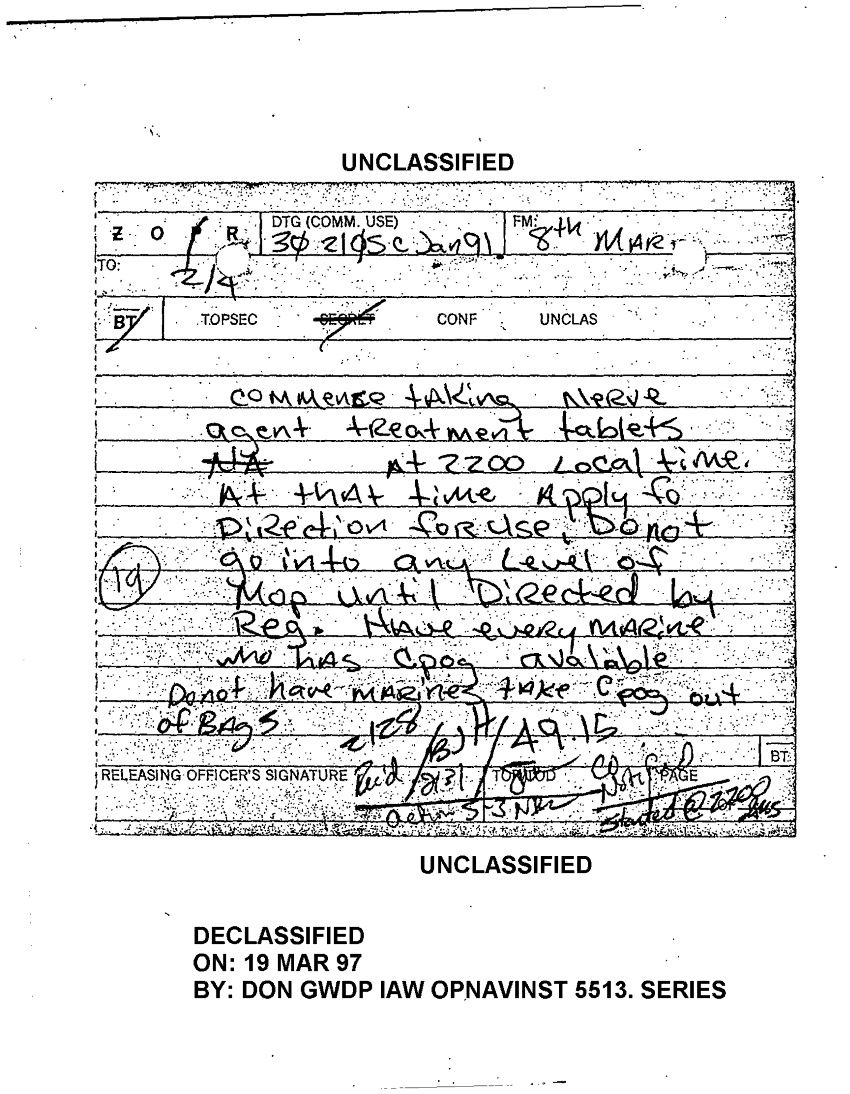 UNCLASSIFIED
Z O P R DTG (COMM. USE) FM:
30 2105C Jan 91 8th MAR.
TO:
2/4
BT TOPSEC SECRET CONF UNCLAS
commense taking Nerve
agent treatment tablets
NA At 2200 Local time.
At that time Apply fo
Direction for use. Do not
go into any Level of
19
Mop until Directed by
Reg. Have every marine
who has Cpog avalable
Do not have marines take Cpog out
of BAgs
2128
49.15
BT
RELEASING OFFICER'S SIGNATURE Rec'd 2131 TOR/TOD PAGE
action S-3 Started @ 2200
UNCLASSIFIED
DECLASSIFIED
ON: 19 MAR 97
BY: DON GWDP IAW OPNAVINST 5513. SERIES